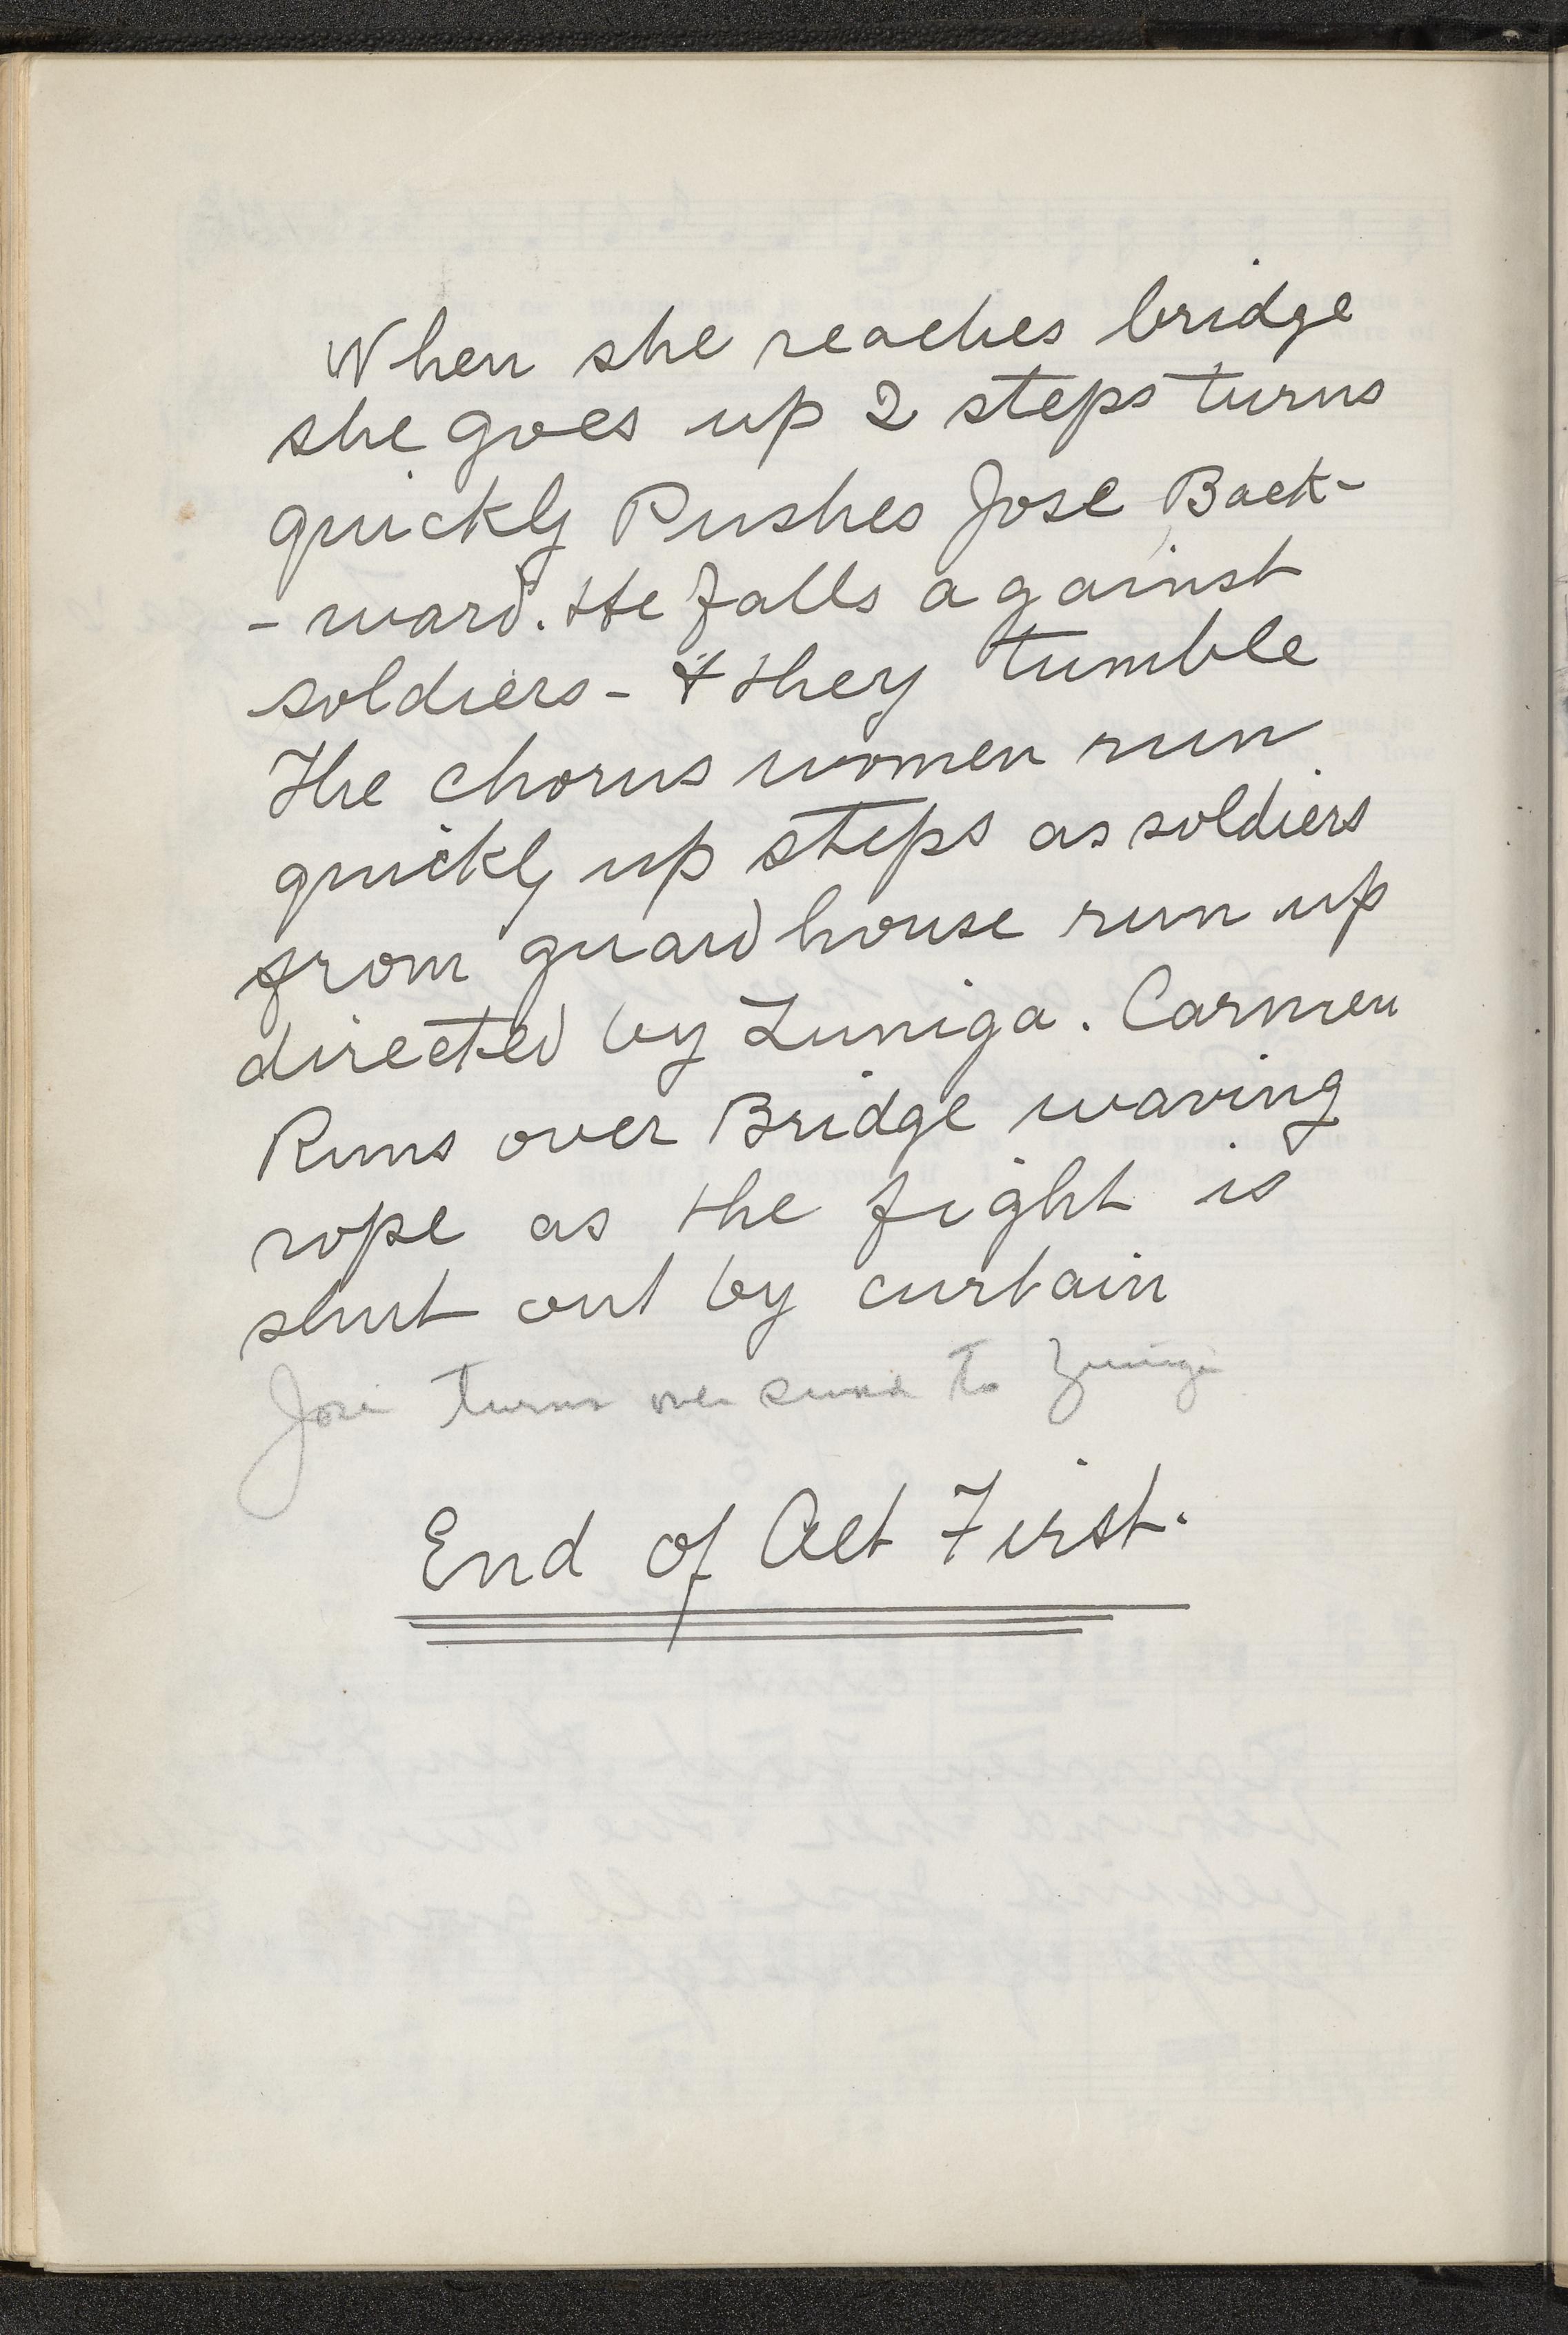 When she reaches bridge
she goes up 2 steps turns
quickly Pushes Jose Back-
- ward. He falls against
soldiers - & they tumble
The chorus women run
quickly up steps as soldiers
from guard house run up
directed by Zuniga. Carmen
Runs over Bridge waving
rope as the fight is
shut out by curtain
Jose turns over to Zuniga
End of Act First.